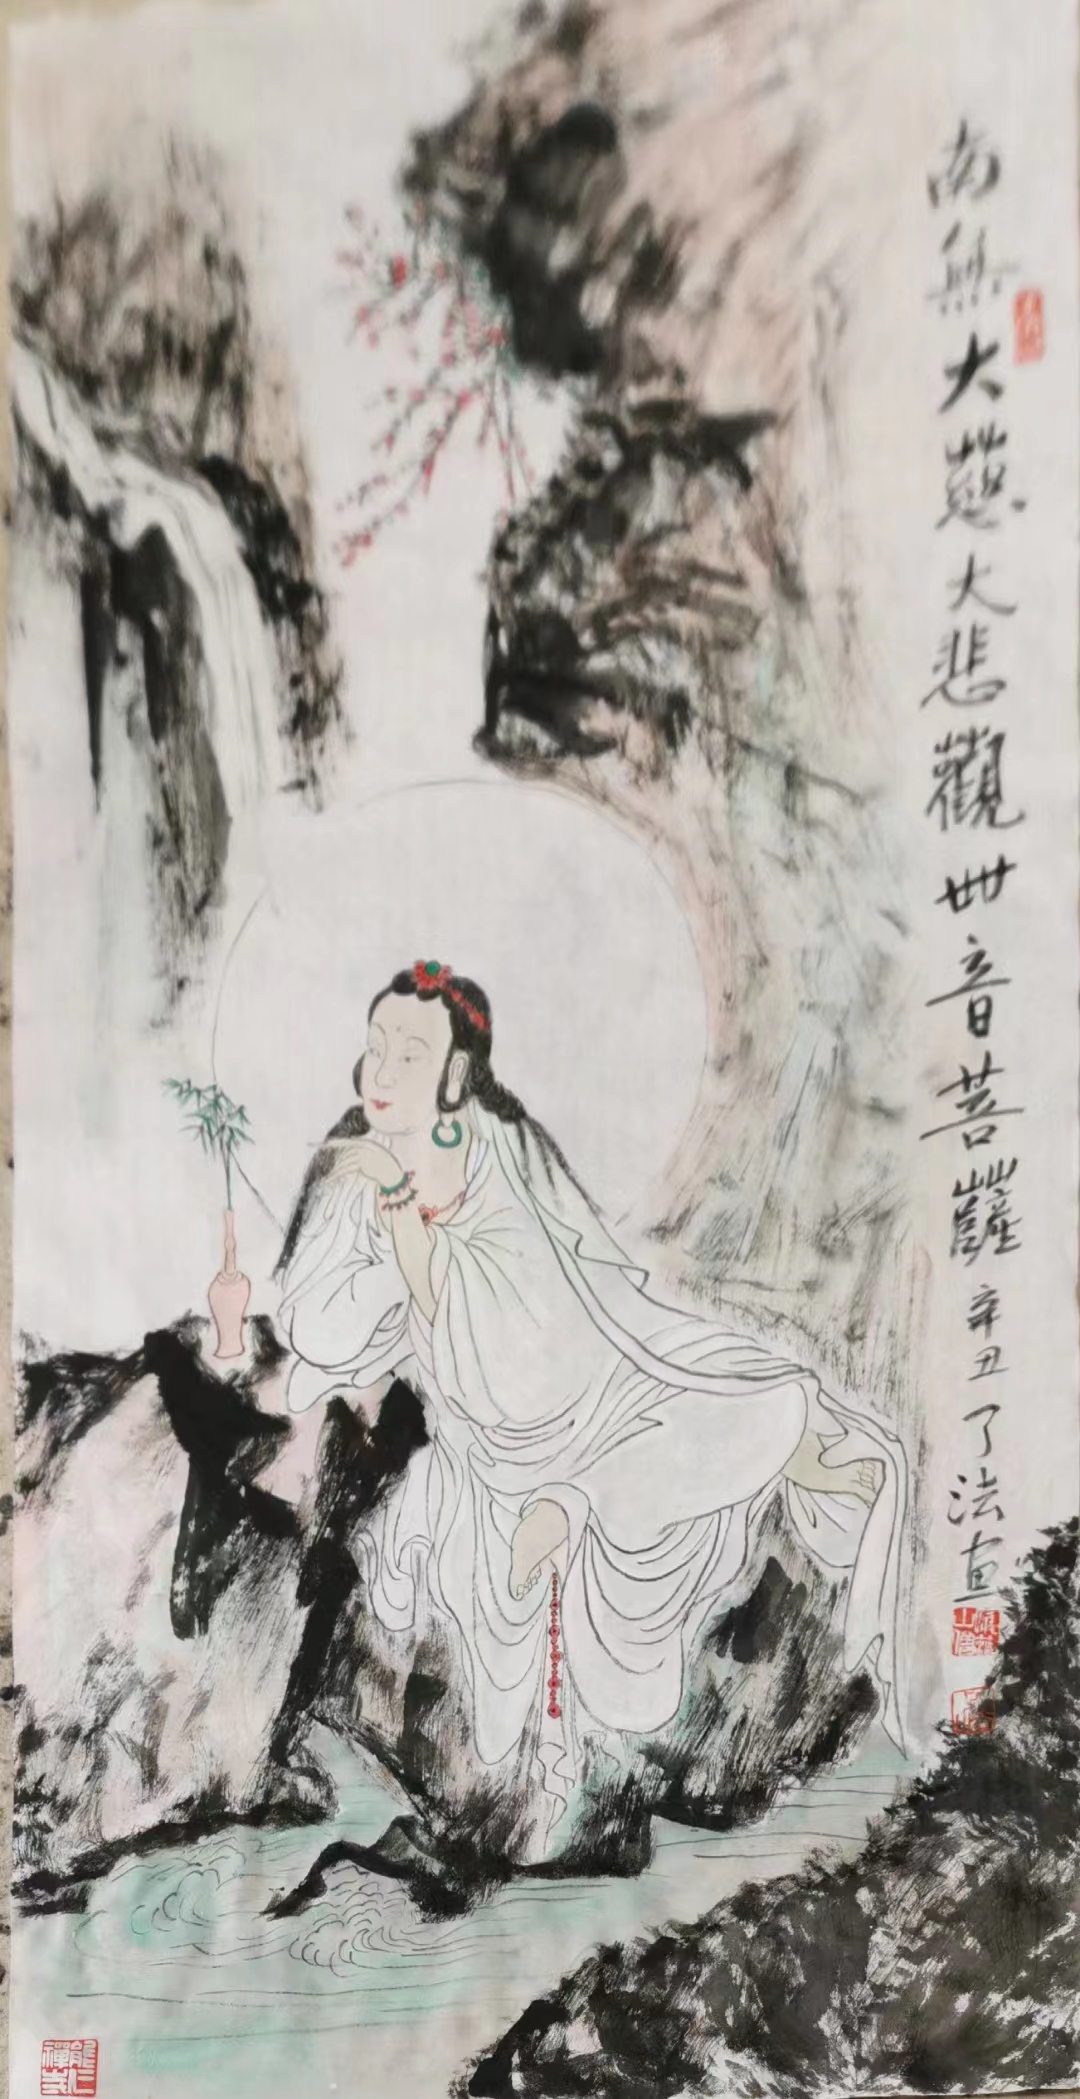 南無大慈大悲觀世音菩薩 辛丑 了法画
能仁禪寺